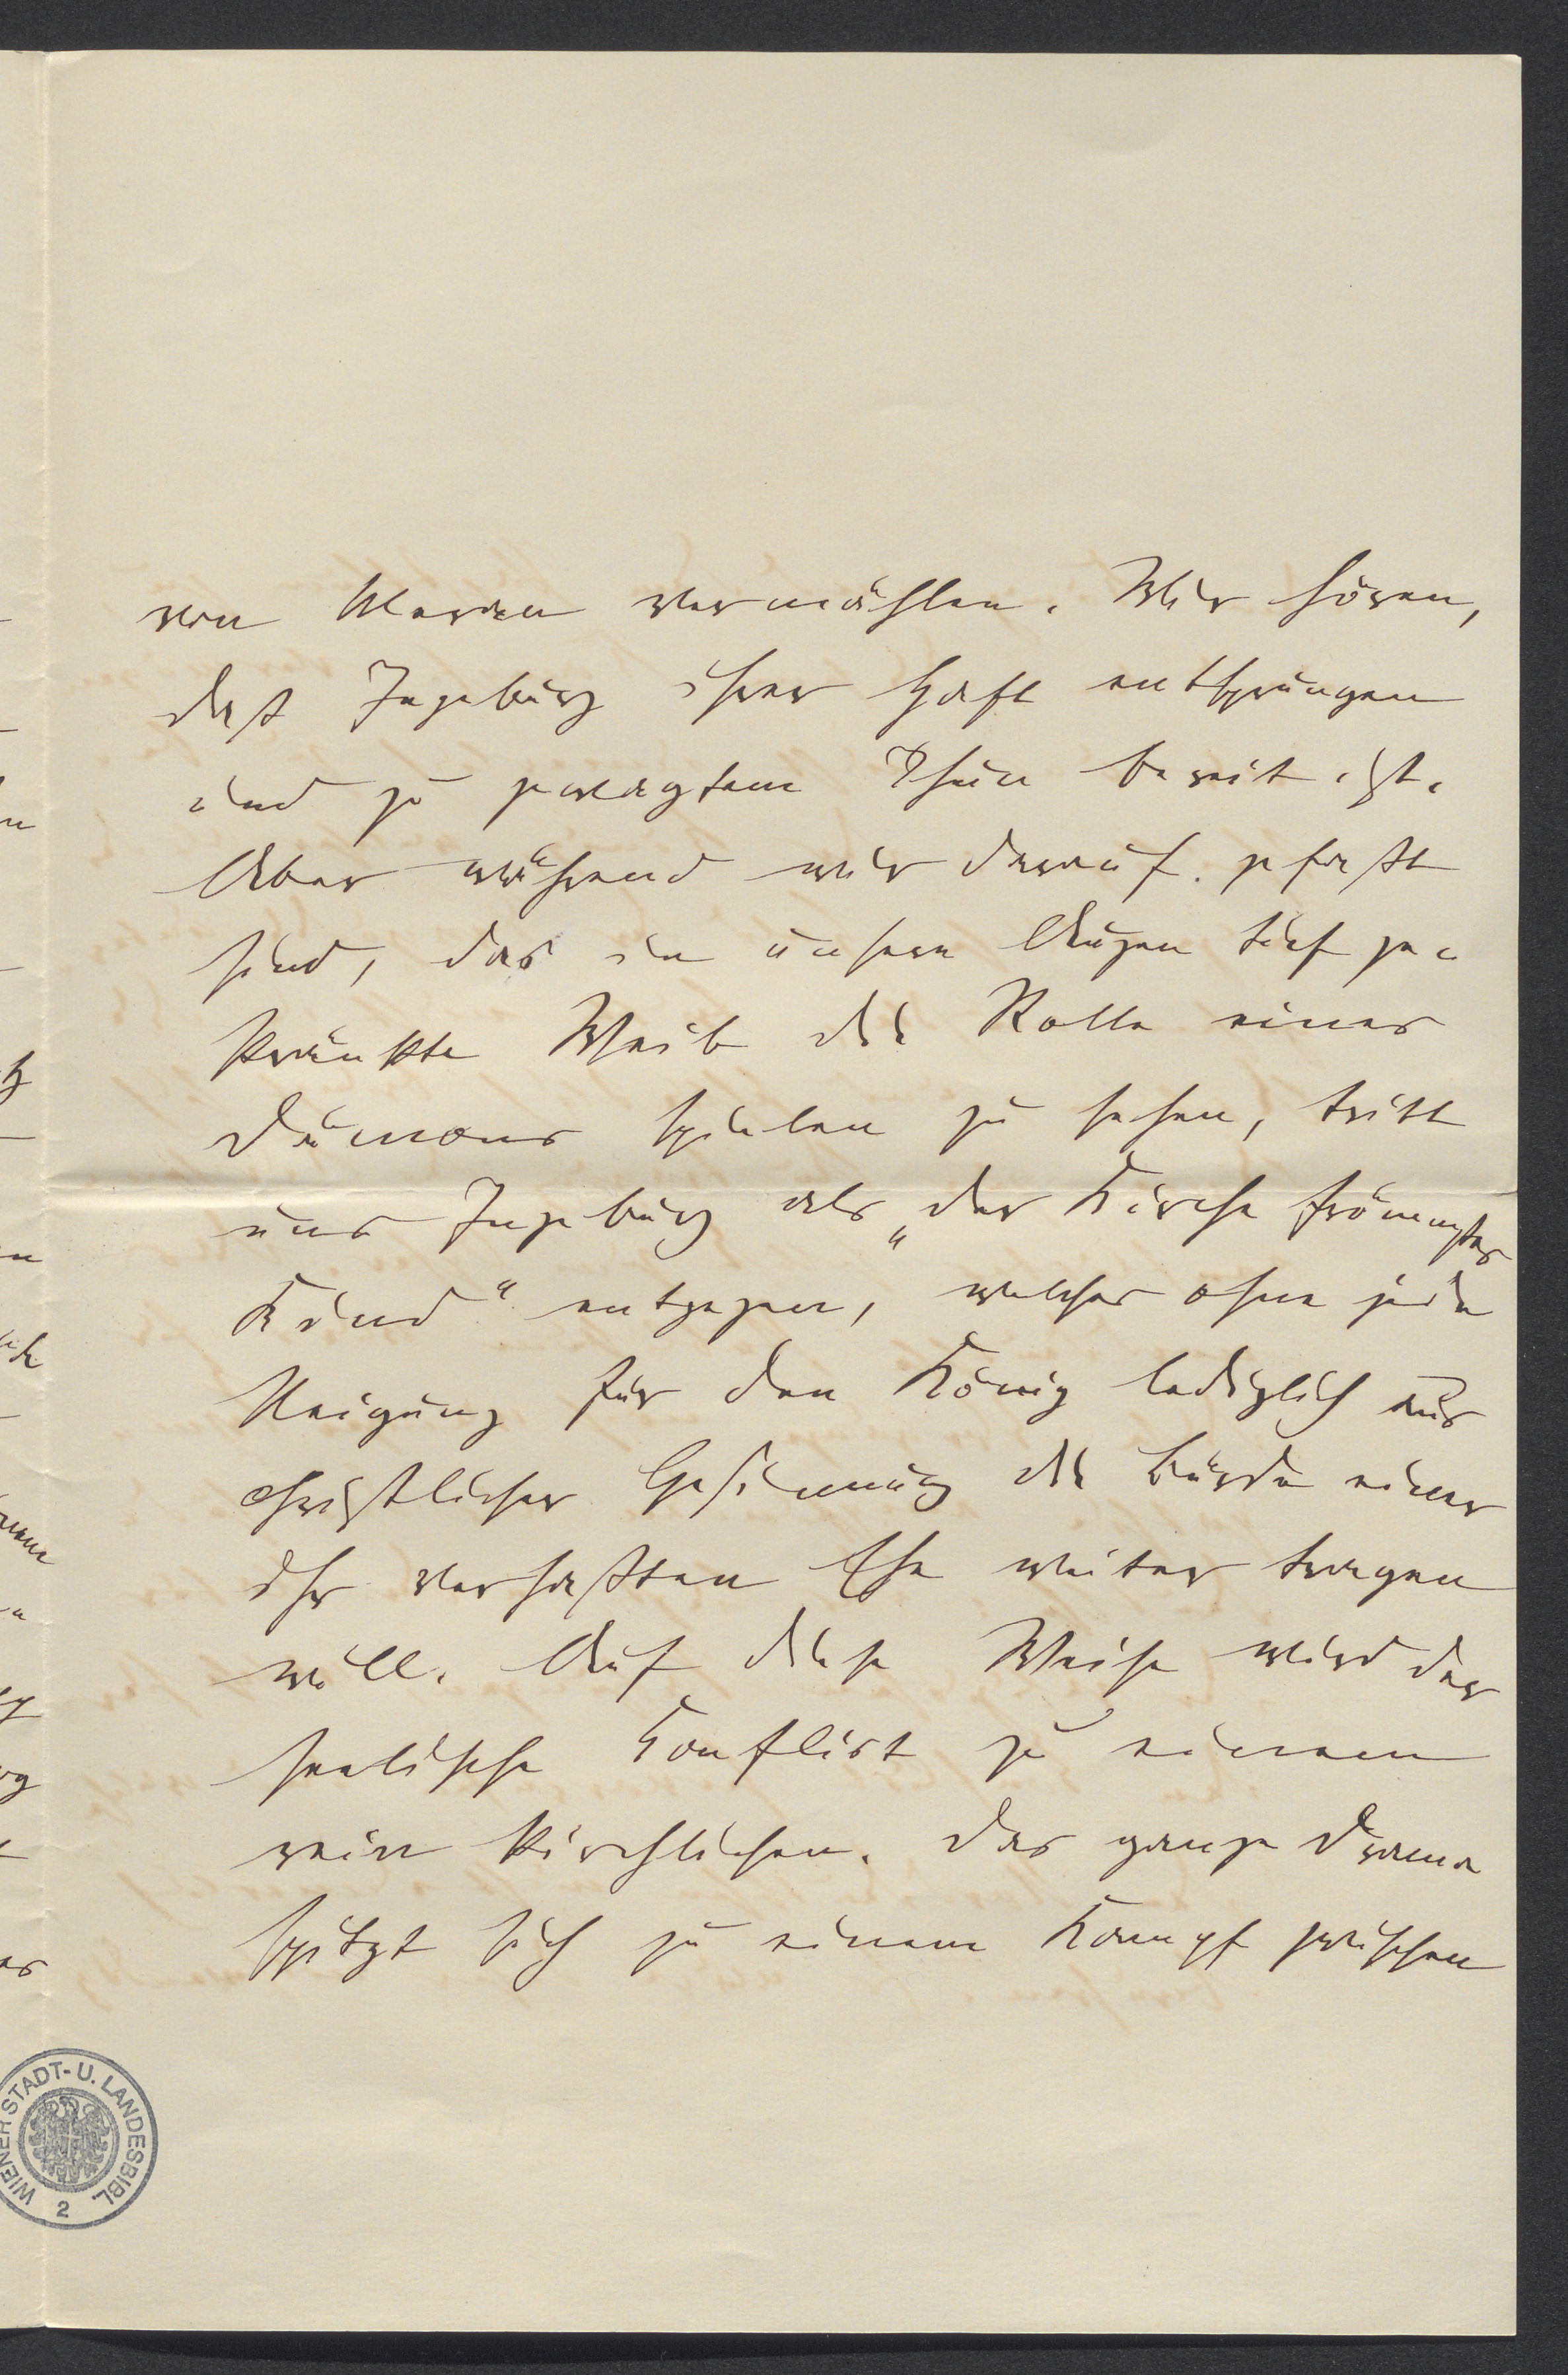 von Meran vermählen. Wir hören,
daß Ingeburg ihrer Haft entsprungen
und zu gewagtem Thun bereit ist.
Aber während wir darauf gefaßt
sind, das in unsern Augen tief ge-
kränkte Weib die Rolle eines
Dämons spielen zu sehen, tritt
uns Ingeburg als „der Kirche frömmstes
Kind“ entgegen, welches ohne jede
Neigung für den König lediglich aus
christlicher Gesinnung die Bürde einer
ihr verhaßten Ehe weiter tragen
will. Auf diese Weise wird der
seelische Conflict zu einem
rein kirchlichen. Das ganze Drama
spitzt sich zu einem Kampf zwischen
WIENER STADT- U. LANDESBIBL.
2